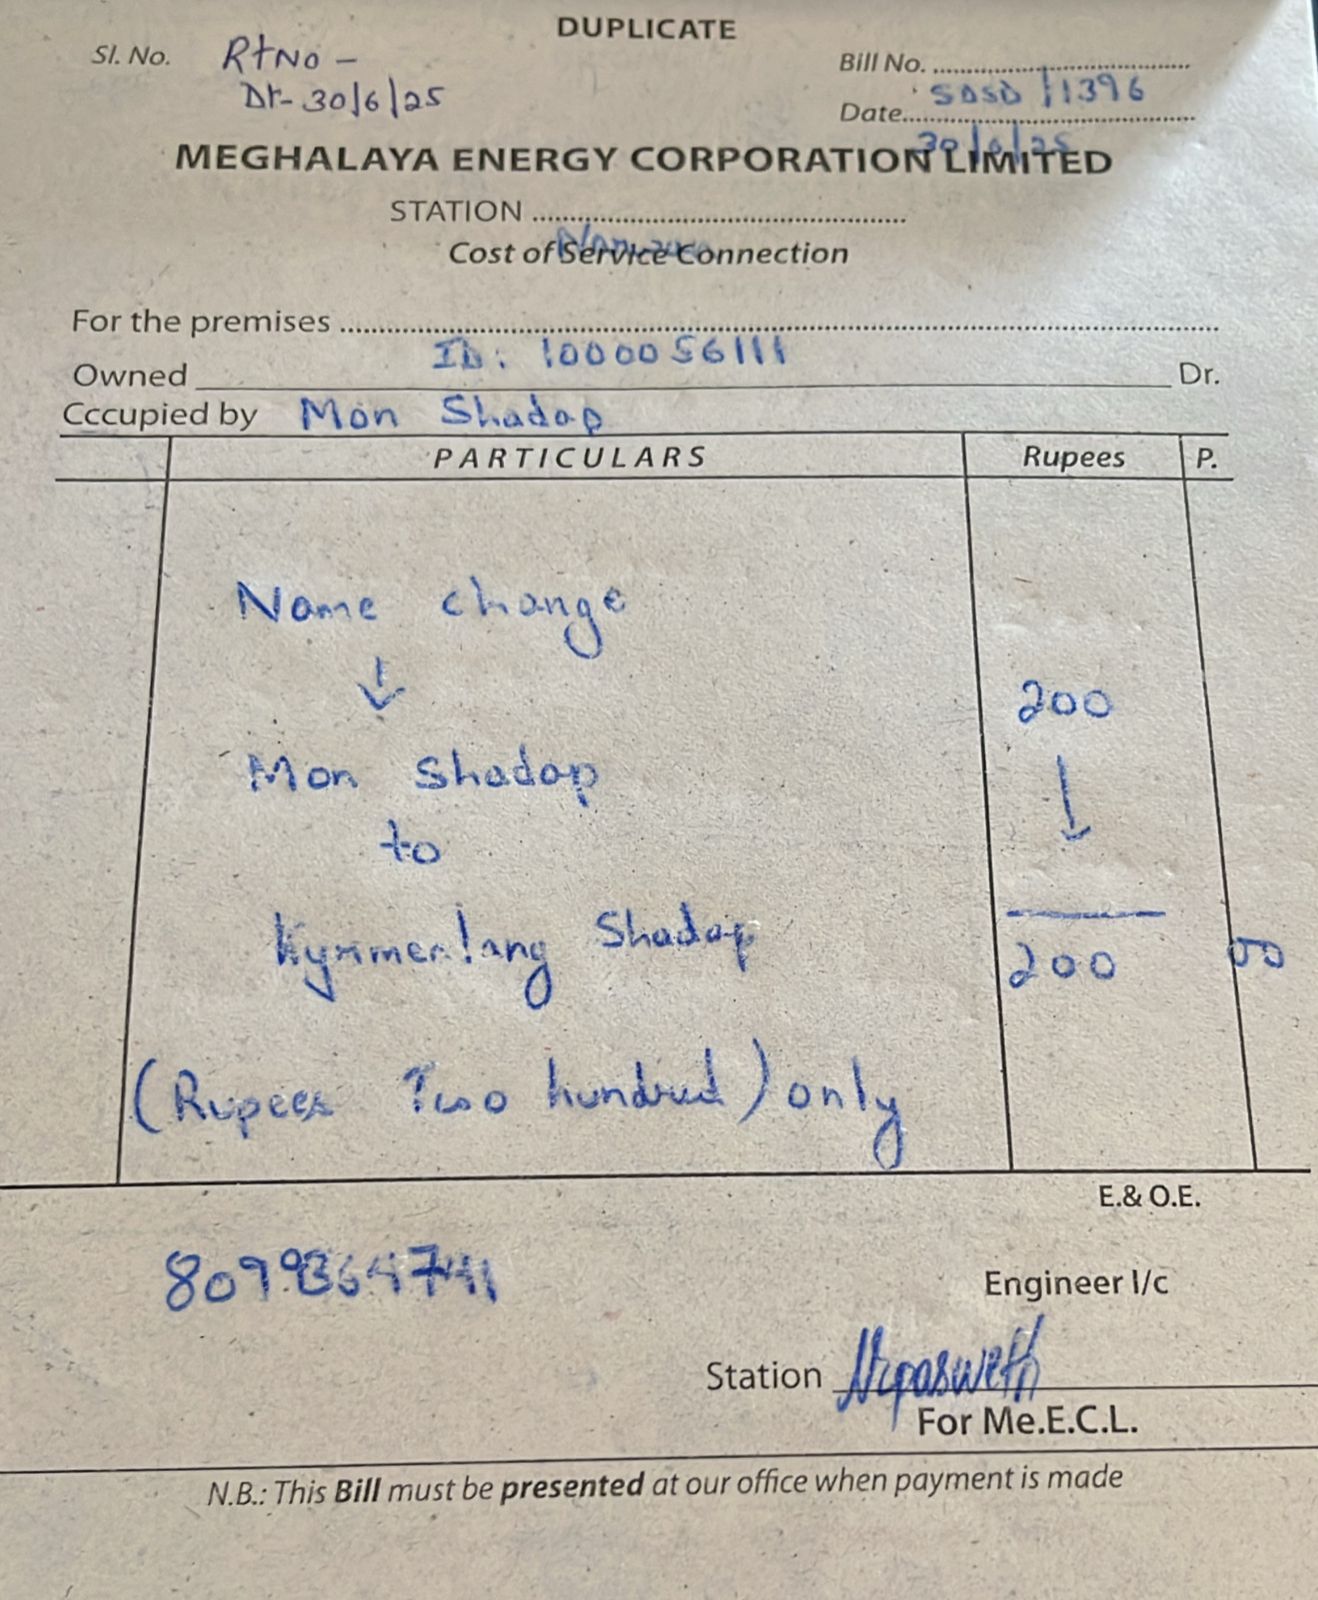 DUPLICATE
Sl. No. RtNo -
Dt- 30/6/25
Bill No. SDSD/1396
Date 30/6/25
MEGHALAYA ENERGY CORPORATION LIMITED
STATION
Cost of Service Connection
For the premises
ID: 1000056111
Owned Dr.
Cccupied by Mon Shadap
PARTICULARS Rupees P.
Name change
↓ 200
Mon Shadap ↓
to
Kynmenlang Shadap 200 00
(Rupees Two hundred) only
E.& O.E.
Engineer I/c
Station
For Me.E.C.L.
N.B.: This Bill must be presented at our office when payment is made